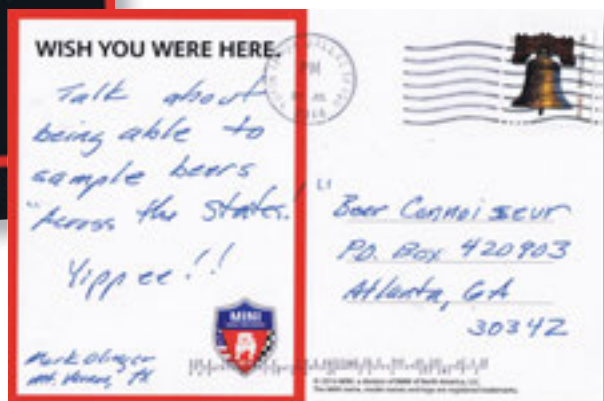 WISH YOU WERE HERE.
Talk about
being able to
sample beers
"Across the States!"
Yippee!!
Mark Olinger
Mt. Vernon, TX
MINI
PM
Beer Connoiseur
P.O. Box 420903
Atlanta, GA
30342